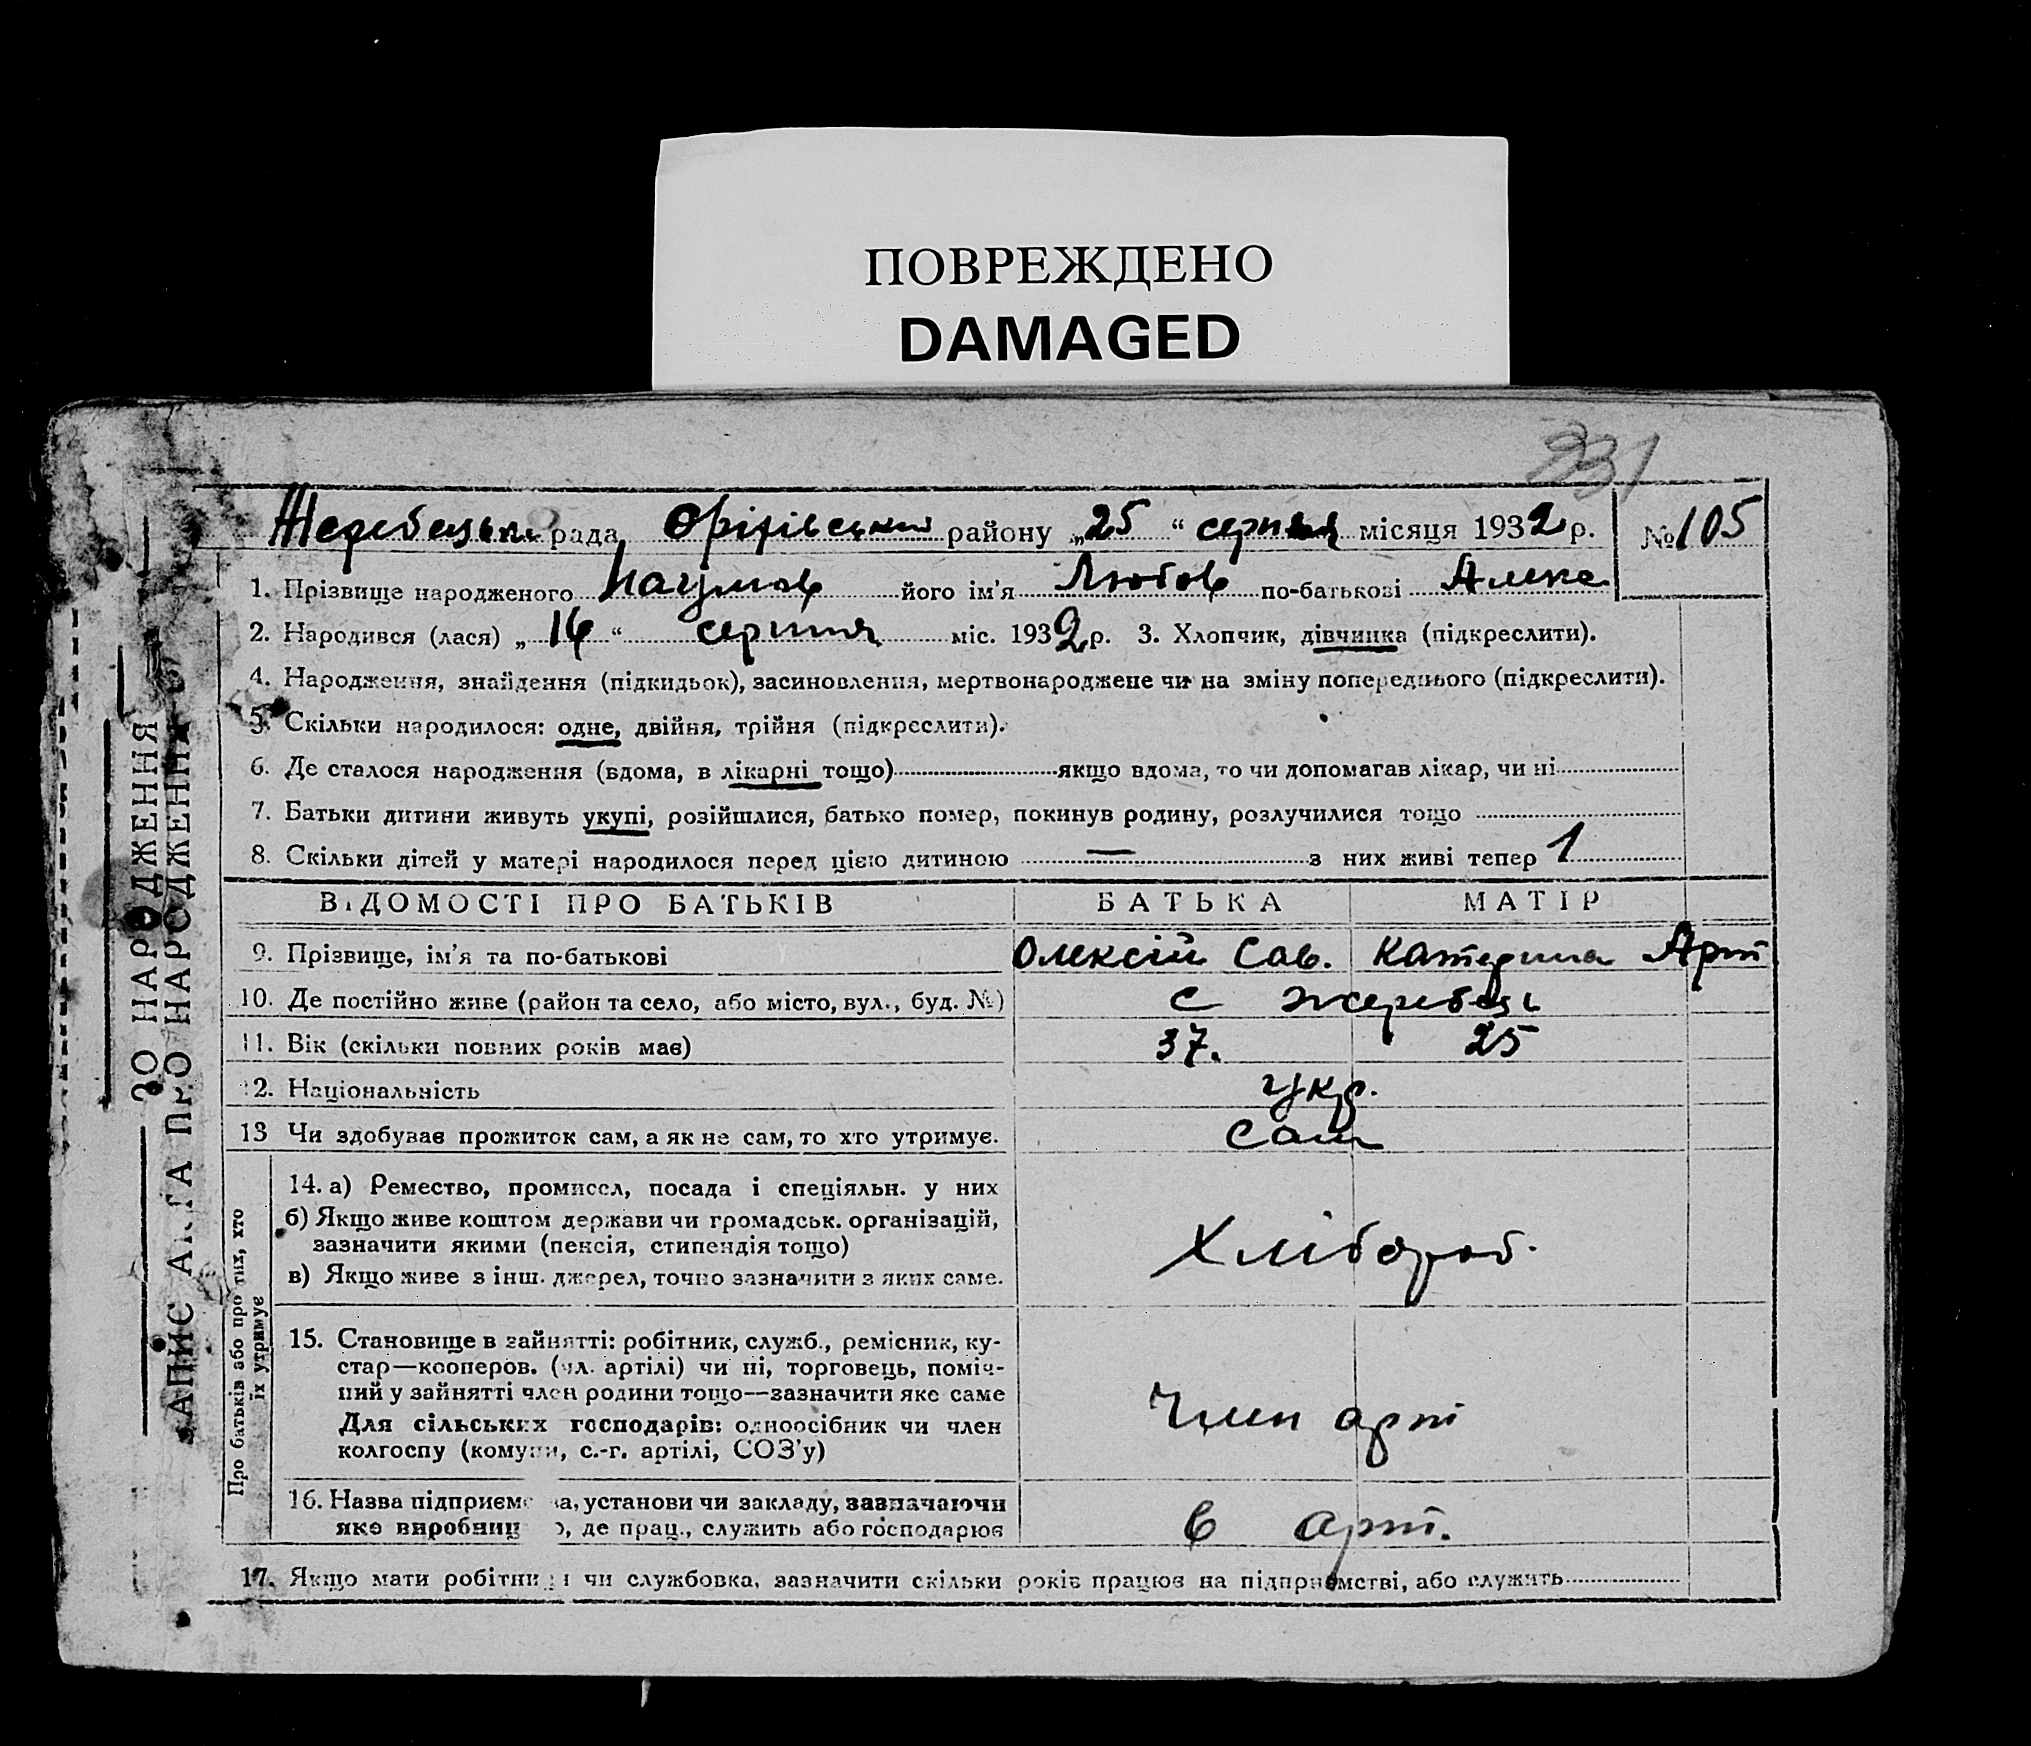 ПОВРЕЖДЕНО
DAMAGED
331
Жеребецьк. рада Оріхівський району „25“ серпня місяця 1932 р. № 105
1. Прізвище народженого Наумов його ім'я Любов по-батькові Алекс
2. Народився (лася) „16“ серпня міс. 1932 р. 3. Хлопчик, дівчинка (підкреслити).
4. Народження, знайдення (підкидьок), засиновлення, мертвонароджене чи на зміну попереднього (підкреслити).
5. Скільки народилося: одне, двійня, трійня (підкреслити).
6. Де сталося народження (вдома, в лікарні тощо) якщо вдома, то чи допомагав лікар, чи ні
7. Батьки дитини живуть укупі, розійшлися, батько помер, покинув родину, розлучилися тощо
8. Скільки дітей у матері народилося перед цією дитиною — з них живі тепер 1
ВІДОМОСТІ ПРО БАТЬКІВ БАТЬКА МАТІР
9. Прізвище, ім'я та по-батькові Олексій Сав. Катерина Арт
10. Де постійно живе (район та село, або місто, вул., буд. №) с Жеребець
11. Вік (скільки повних років має) 37. 25
12. Національність укр.
13 Чи здобуває прожиток сам, а як не сам, то хто утримує. Сам
Про батьків або про тих, хто
їх утримує
14. а) Ремество, промисел, посада і спеціяльн. у них
б) Якщо живе коштом держави чи громадськ. організацій,
зазначити якими (пенсія, стипендія тощо)
в) Якщо живе з інш. джерел, точно зазначити з яких саме.
Хлібороб.
15. Становище в зайнятті: робітник, служб., ремісник, ку-
стар—кооперов. (чл. артілі) чи ні, торговець, поміч-
ний у зайнятті член родини тощо—зазначити яке саме
Для сільських господарів: одноосібник чи член
колгоспу (комуни, с.-г. артілі, СОЗ'у)
Член арт
16. Назва підприємства, установи чи закладу, зазначаючи
яке виробництво, де прац., служить або господарює
в арт.
17. Якщо мати робітниця чи службовка, зазначити скільки років працює на підприємстві, або служить
ЗАПИС АКТА ПРО НАРОДЖЕННЯ
ПРО НАРОДЖЕННЯ